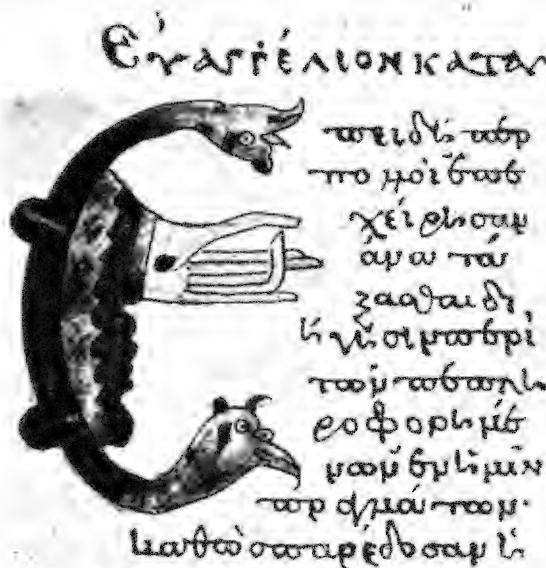 Εὐαγγέλιον κατὰ
Ἐπειδήπερ
πολλοὶ ἐπε
χείρησαν
ἀνατά
ξασθαι δι
ήγησιν περὶ
τῶν πεπλη
ροφορημέ
νων ἐν ἡμῖν
πραγμάτων·
καθὼς παρέδοσαν ἡ